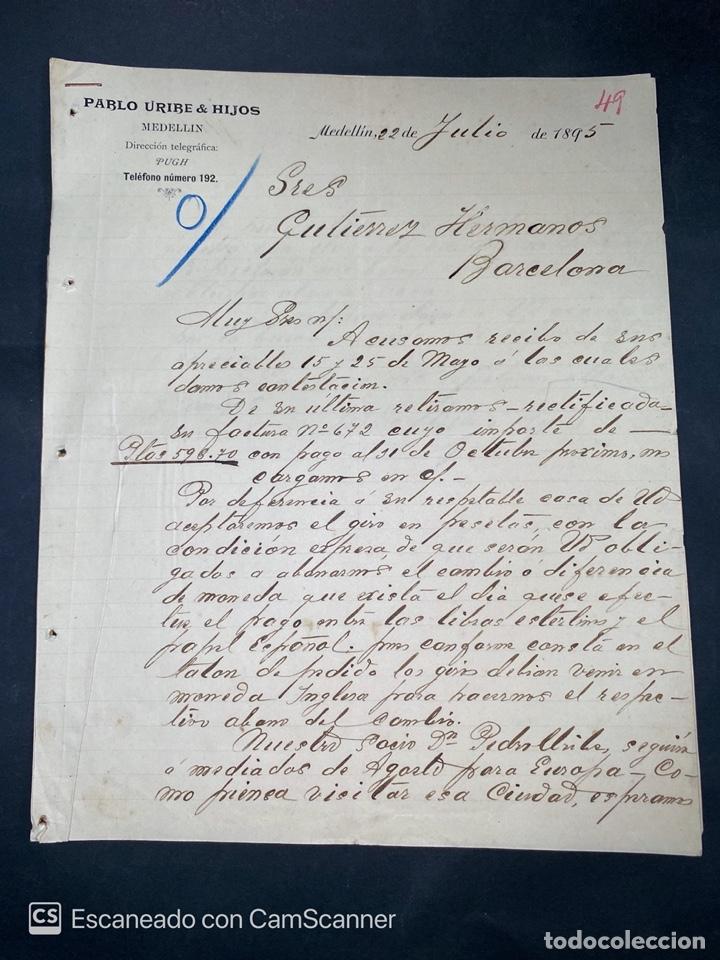 PABLO URIBE & HIJOS
MEDELLIN
Dirección telegráfica:
PUGH
Teléfono número 192.
49
Medellín, 22 de Julio de 1895
Sres
Gutiérrez Hermanos
Barcelona
Muy Sres n/:
Acusamos recibo de sus
apreciables 15 y 25 de Mayo á las cuales
damos contestacion.
De su última retiramos - rectificada -
su factura Nº 672 cuyo importe de —
Ptas 598.70 con pago al 31 de Octubre proximo,
cargamos en c/. -
Por deferencia á su respetable casa de Ud
aceptaremos el giro en pesetas, con la
condición expresa, de que serán Ud obli-
gados a abonarnos el cambio ó diferencia
de moneda que exista el dia que se efec-
tue el pago entre las libras esterlinas y el
papel Español. pues conforme consta en el
talon de pedido los giros debian venir en
moneda Inglesa para hacernos el respec-
tivo abono del cambio.
Nuestro socio Dn Pedro Uribe, seguirá
á mediados de Agosto para Europa - Co-
mo piensa visitar esa Ciudad, esperamos
CS Escaneado con CamScanner
todocoleccion